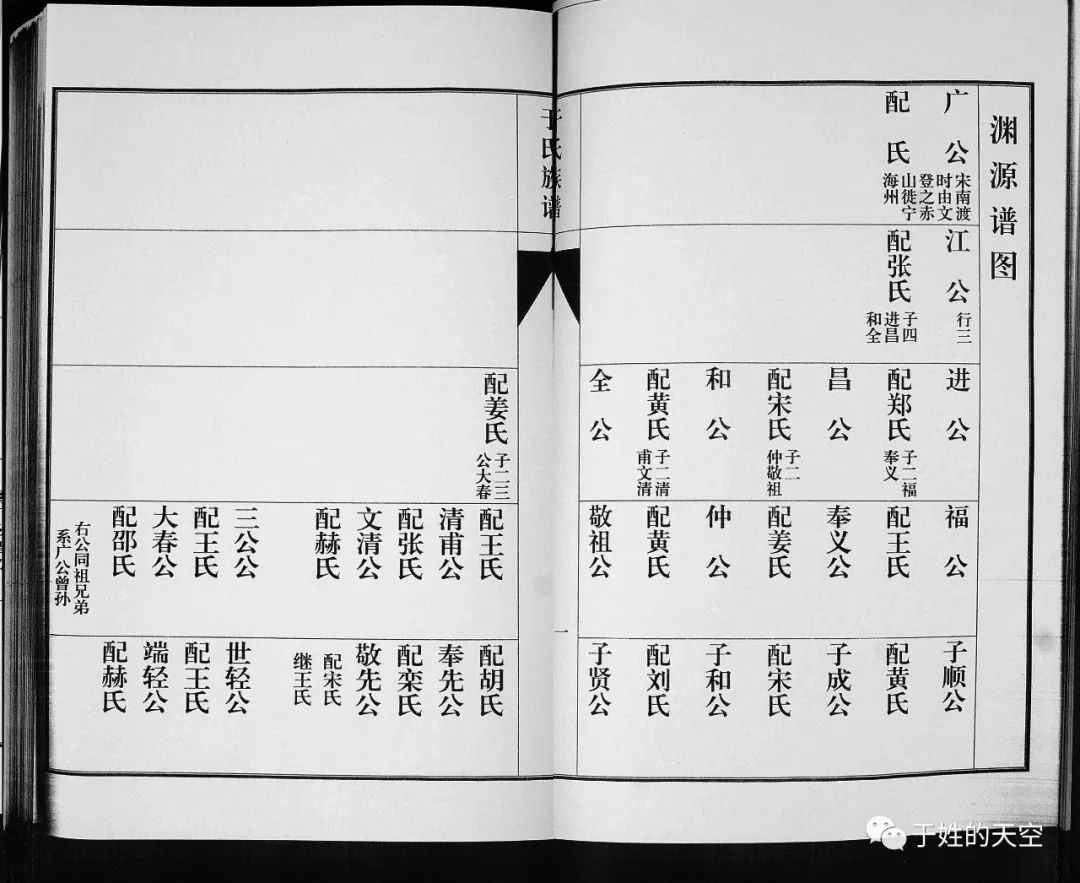 渊源谱图
广公
宋南渡
时由文
登之赤
山徙宁
海州
配氏
江公
行三
配张氏
子四
进昌
和全
进公
配郑氏
子二福
奉义
昌公
配宋氏
子二
仲敬祖
和公
配黄氏
子二清
甫文清
全公
配姜氏
子二三
公大春
福公
配王氏
奉义公
配姜氏
仲公
配黄氏
敬祖公
配王氏
清甫公
配张氏
文清公
配赫氏
三公公
配王氏
大春公
配邵氏
右公同祖兄弟
系广公曾孙
子顺公
配黄氏
子成公
配宋氏
子和公
配刘氏
子贤公
配胡氏
奉先公
配栾氏
敬先公
配宋氏
继王氏
世轻公
配王氏
端轻公
配赫氏
于氏族谱
一
于姓的天空